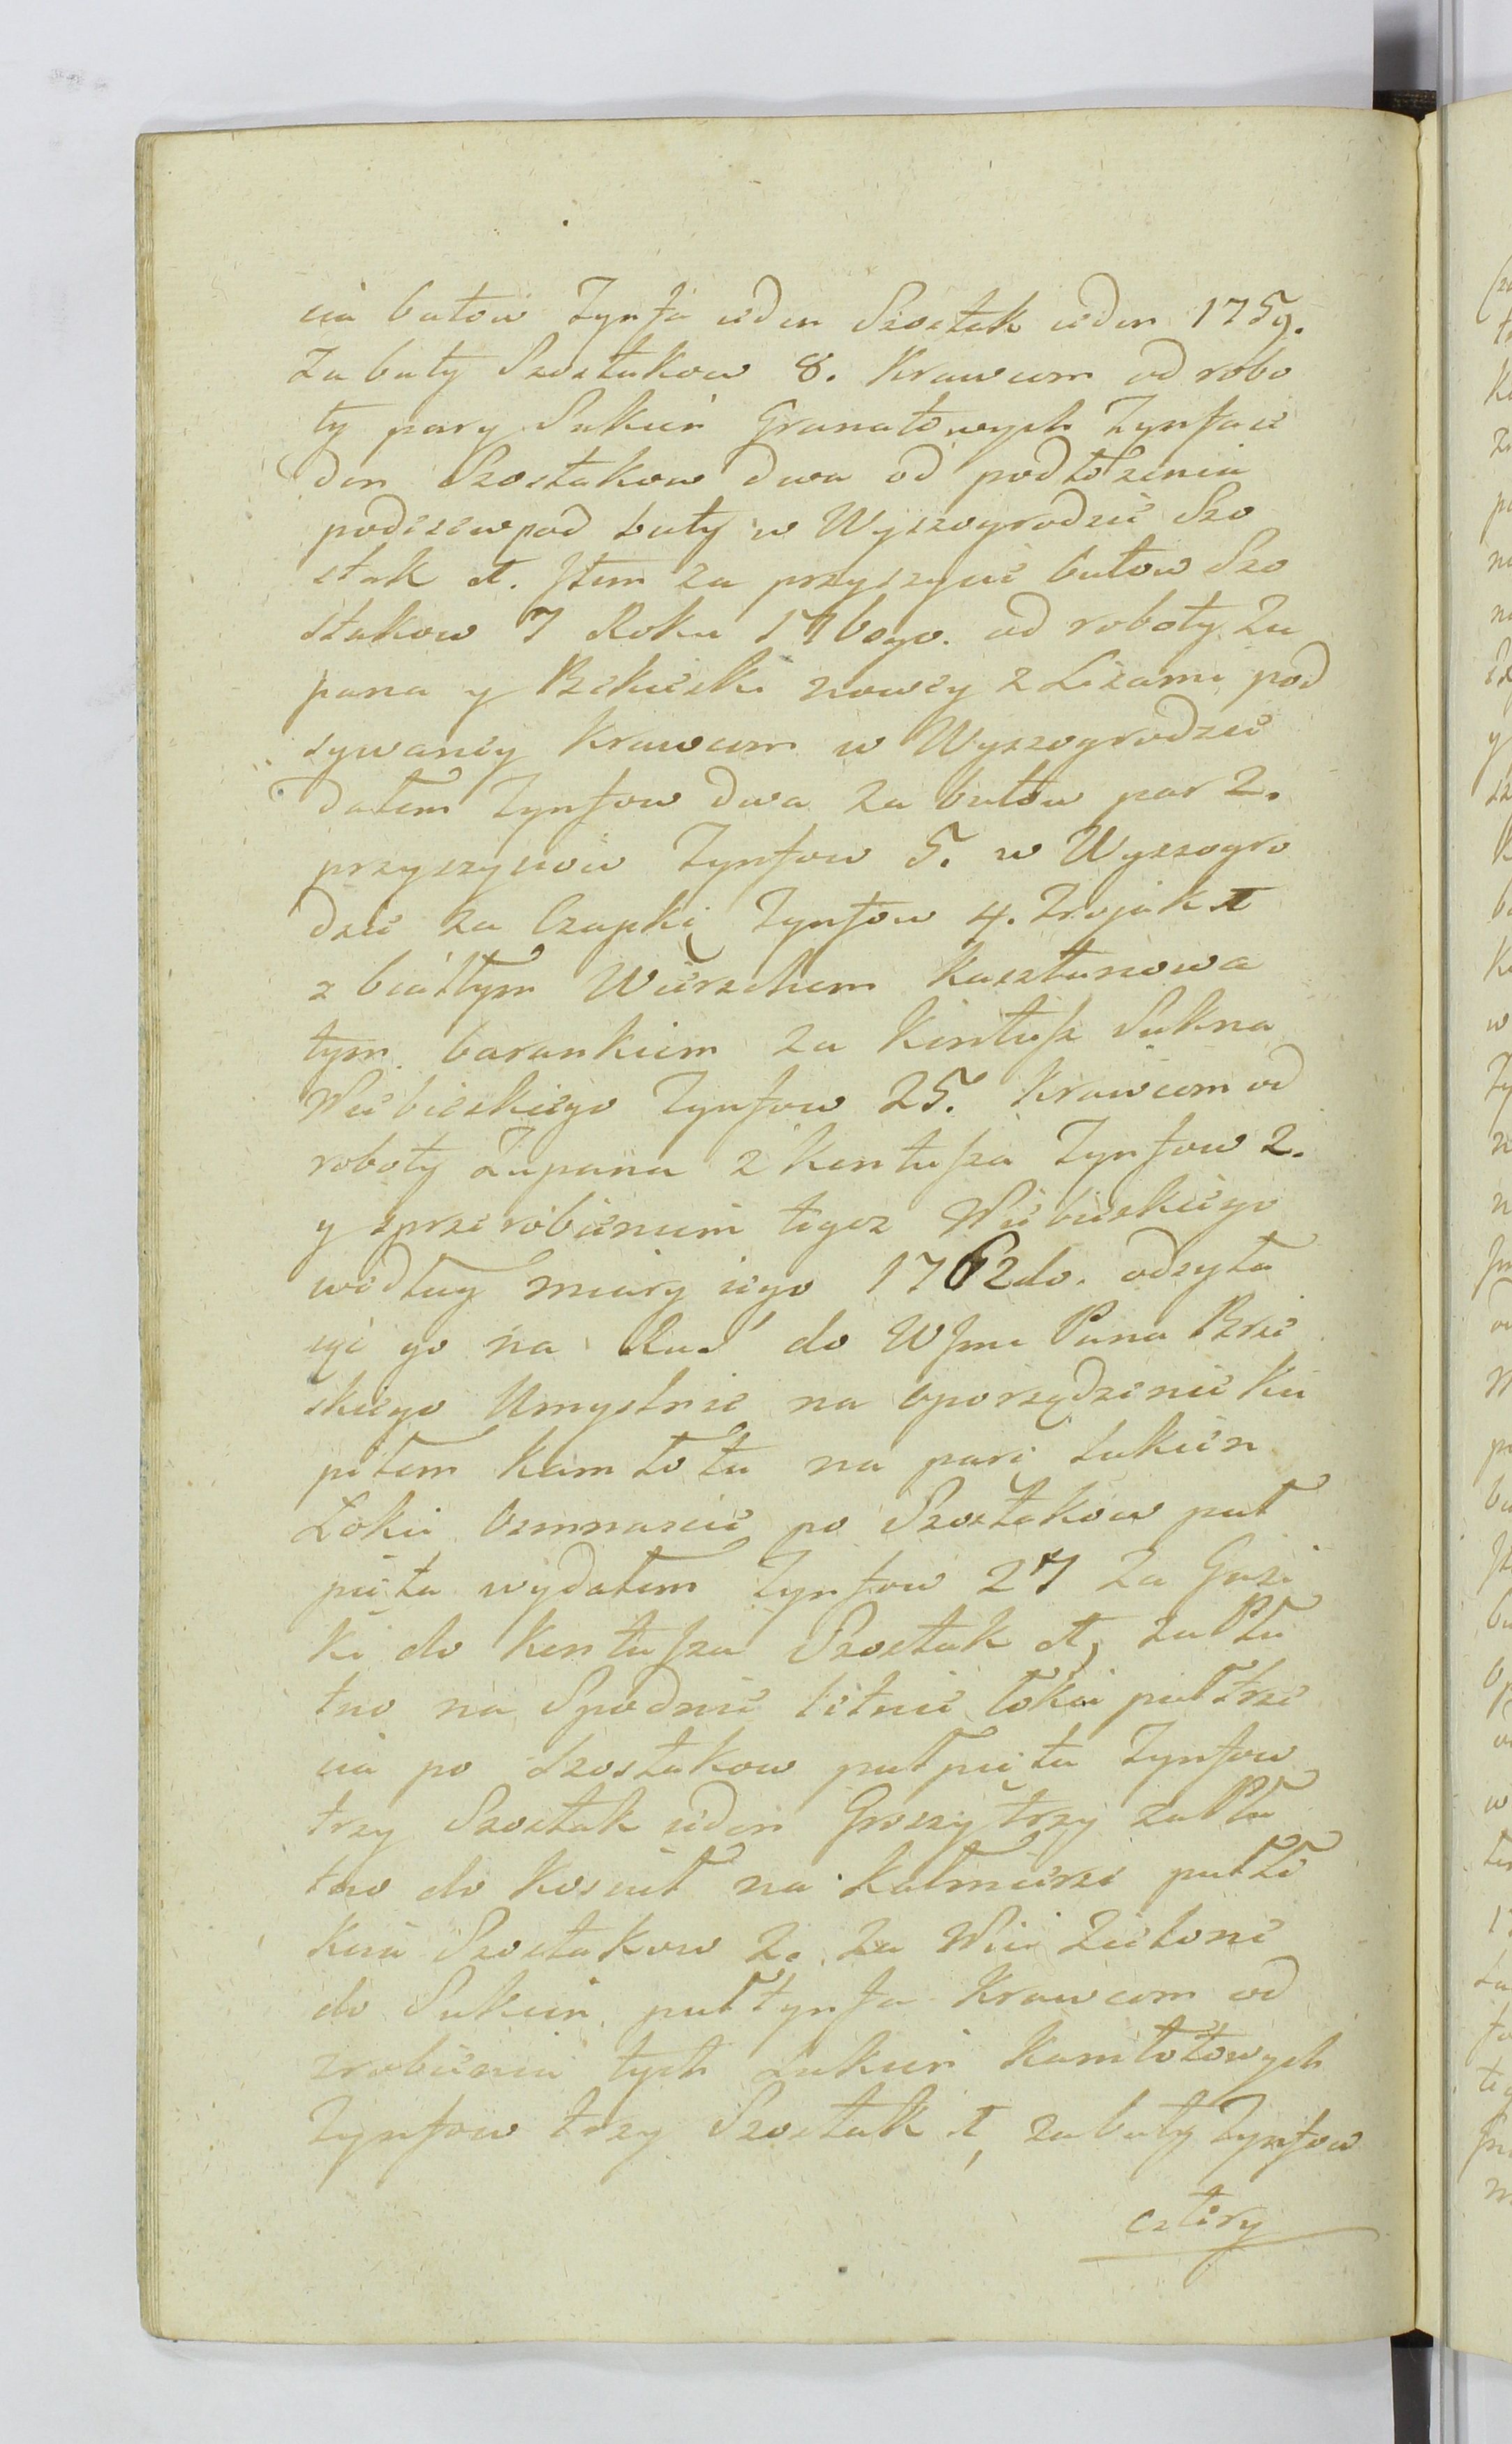 cia butow Tynfa ieden Szostak ieden 1759.
Za buty Szostakow 8. Krawcom od robo
ty pary Sukien Granatowych Tynf ie
den Szostakow dwa od podłożenia
podeszew pod buty w Wyszogrodzie Szo
stak 1. Jtem za przyszycie butow Szo
stakow 7 Roku 1760go. od roboty Żu
pana y Bekieski nowey z Lizami pod
szywaney Krawcom w Wyszogrodzie
dałem Tynfow dwa za butow par 2.
przyszyciow Tynfow 5. w Wyszogro
dzie za Czapkę Tynfow 4. Trojak 1
z białtym Wierzchem kasztanowa
tym barankiem za Kintusz Sukna
Wiebieskiego Tynfow 25. Krawcom od
roboty Żupana z kentusza Tynfow 2.
y zprzerobieniem tegoz Wiebieskiego
według miary iego 1762do. odsyła
iąc go na Ruś do WJmci Pana Brze
skiego Umyslnie na oporządzenie Ku
piłem kamłotu na parę sukien
Łokci osmnascie po Szostakow puł
pięta wydałem Tynfow 27 za Guzi
ki do kentusza Szostak 1, za Płu
tno na Spodnie letnie łokci puł trze
cia po szostakow puł pięta Tynfow
trzy Szostak ieden Groszy trzy za Płu
tno do Koszul na kołnierze puł ło
kcia Szostakow 2. za Nici Zielone
do Sukien puł tynfa Krawcom od
zrobienia tych sukien kamłotowych
Tynfow trzy Szostak 1, za buty Tynfow
cztery